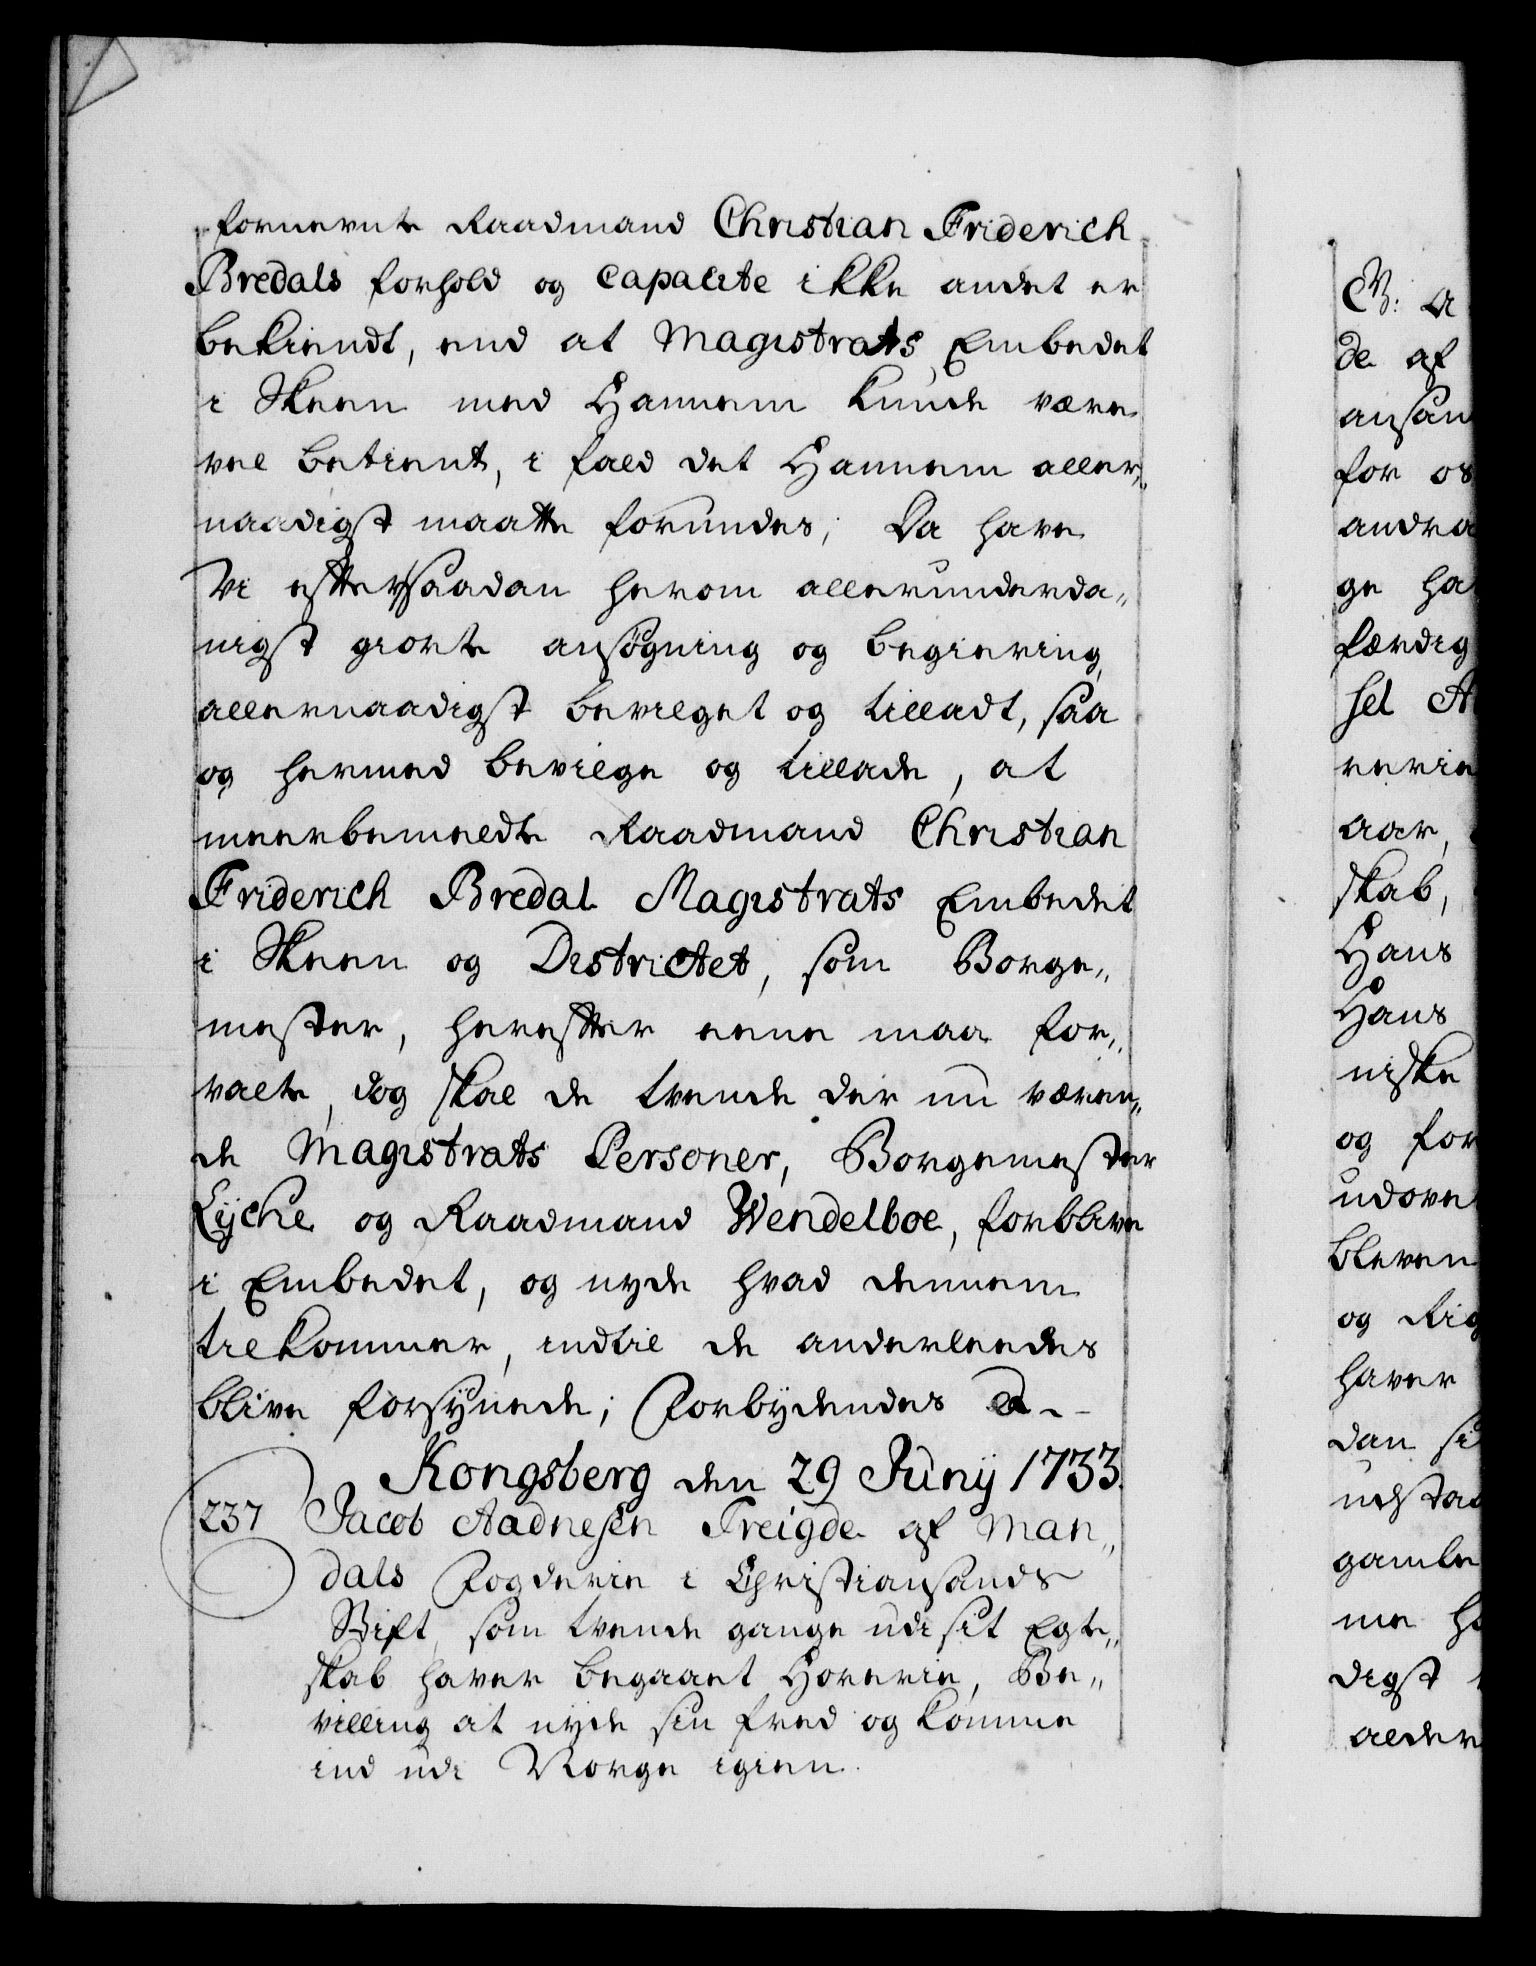 fornevnte Raadmand Christian Friderich
Bredals forhold og capacite ikke andet er
bekiendt, end at Magistrats Embedet
i Skeen med Hannem kunde være
vel betient, i fald det Hannem aller„
naadigst maatte forundes; Da have
Vi efter saadan herom allerunderda„
nigst giorte ansøgning og begiering,
allernaadigst bevilget og tilladt, saa
og hermed bevilge og tillade, at
meerbemeldte Raadmand Christian
Friderich Bredal Magistrats Embedet
i Skeen og Districtet, som Borge„
mester, herefter eene maa for„
valte, dog skal de tvende der nu væren„
de Magistrats Personer, Borgemester
Lyche og Raadmand Wendelboe, forblive
i Embedet, og nyde hvad dennem
tilkommer, indtil de anderleedes
blive forsynede; Forbydendes &.-
Kongsberg den 29 Junij 1733.
237 Jacob Aadnesen Freigde af Man„
dals Fogderie i Christiansands
Stift, som tvende gange udi sit Egte„
skab haver begaaet Horerie, Be„
villing at nyde sin fred og komme
ind udi Norge igien.
G: A
de af
ansøn
for os
andra
ge ha
færdig
sel A
rerie
aar,
skab,
Hans
Hans
niske
og for
udove
bleven
og Rig
haver
dan si
udstaa
gamle
me ha
digst
alder